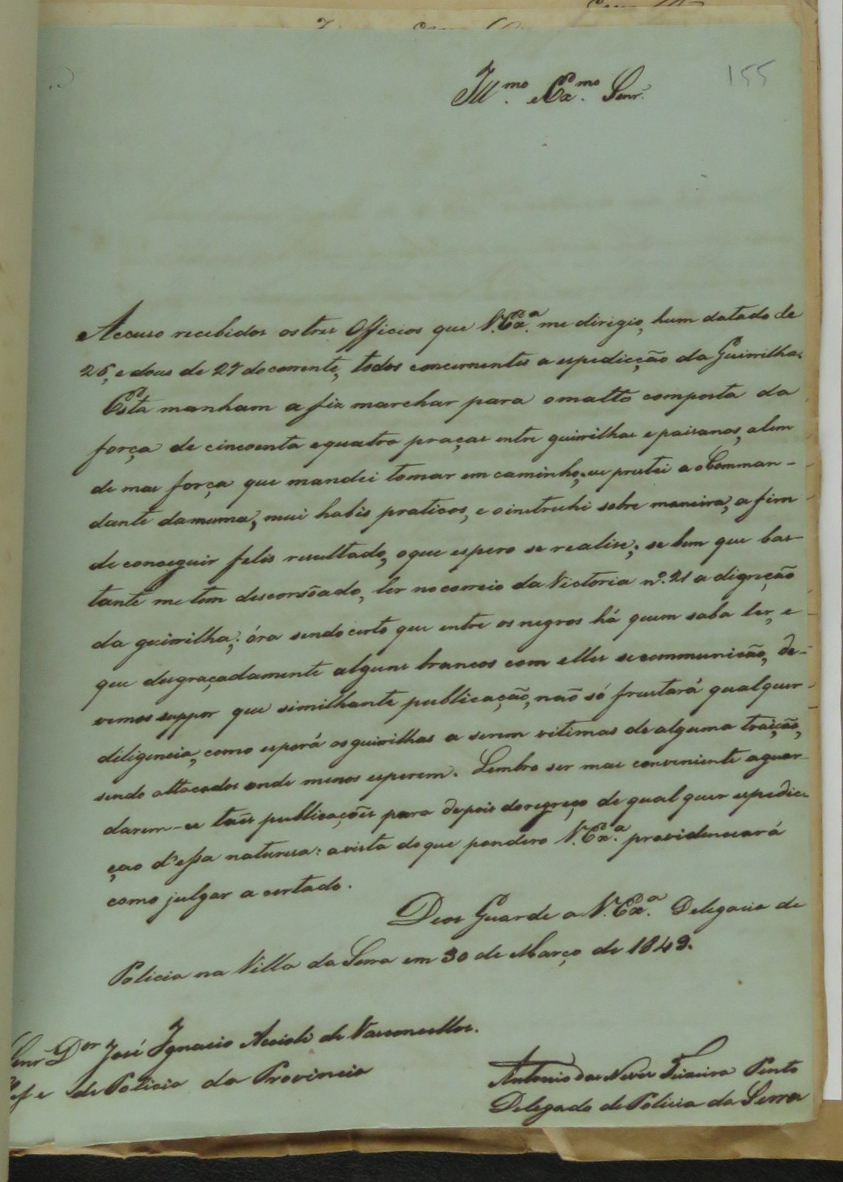 155
Ill.mo e Ex.mo Senr.
Accuso recebidos os tres Officios que V. Ex.a me dirigio, hum datado de
26, e dous de 27 do corrente, todos concernentes a espedicção da Guirrilha.
Esta manham a fiz marchar para o matto composta da
força de cincoenta e quatro praças entre guirilhas e paisanos, alem
de mas força que mandei tomar em caminho, e prestei ao Comman-
dante da mesma, mui habis praticos, e o instruhi sobre maneira, a fim
de conseguir felis resultado, o que espero se realise; se bem que bas-
tante me tem descorsoado, ler no correio da Victoria nº. 21 a digreção
da guirrilha; óra sendo certo que entre os negros há quem saba ler, e
que desgraçadamente alguns brancos com elles se communicão, de-
vemos suppor que similhante publicação, não só frustará qualquer
diligencia, como esporá os guirilhas a serem vitimas de alguma traição,
sendo attacados onde menos esperem. Lembro ser mas conveniente aguar-
darem-se taes publicações para depois do regreço de qualquer espedic-
çao d'essa naturesa: a vista do que pondero V. Ex.a providenciará
como julgar a certado.
Deos Guarde a V. Ex.a Delegacia de
Policia na Villa da Serra em 30 de Março de 1849.
Senr. Dor José Ignacio Accioli de Vasconcellos.
de Policia da Provincia
Antonio das Neves Teixeira Pinto
Delegado de Policia da Serra